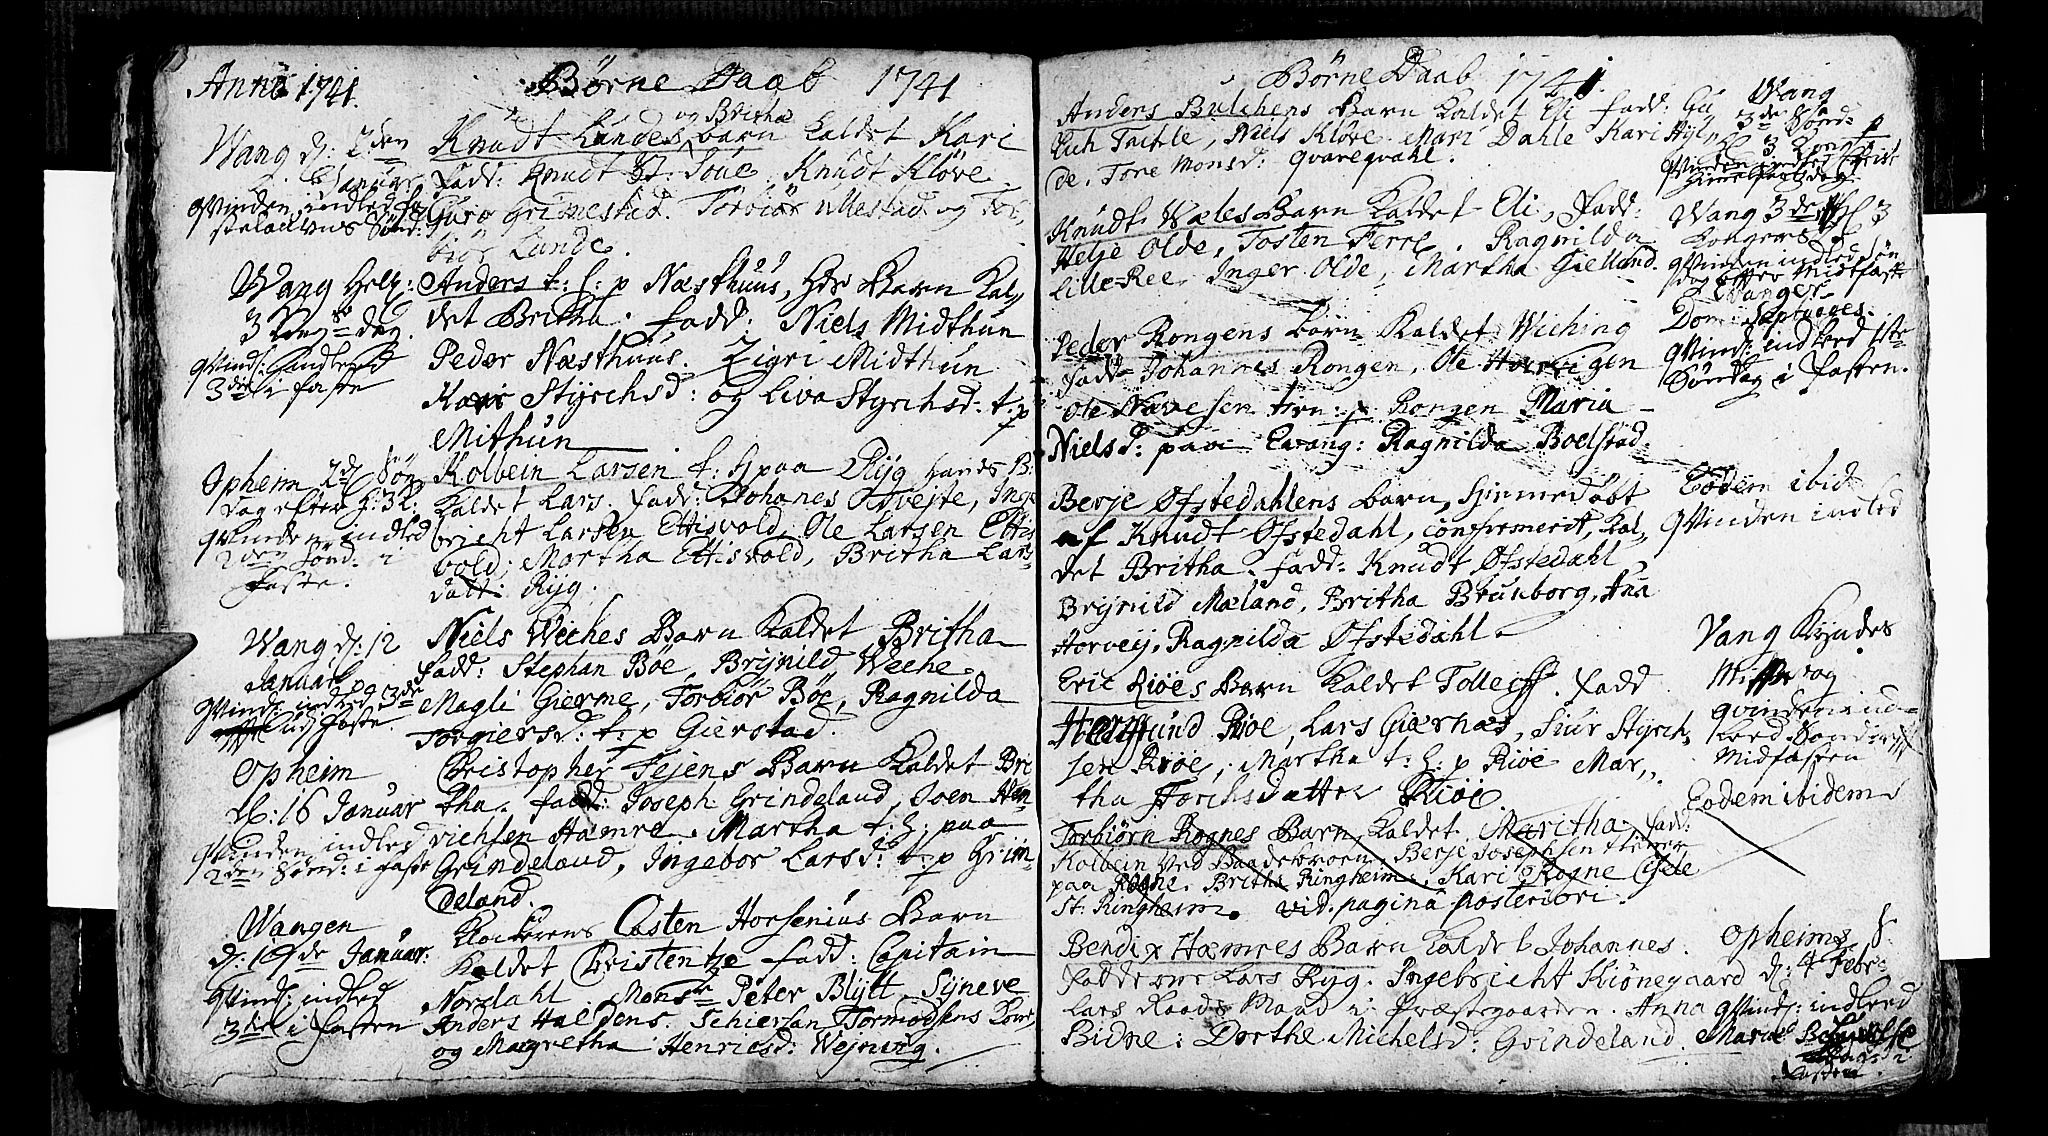 Anno 1741.
Børne Daab 1741
Wang d: 2den
Januar
Qvinden indled fa
stelavens Sønd:
og Britha
Knudt Lundes barn kaldet Kari
fadd: Knudt St: Soue, Knudt Kløve
Guro Grimestad. Torbiør Ullestad og Tor,
biør Lunde.
Wang Hell:
3 Kong: dag
Qvind: indleed
3die i faste
Anders t: h: p Næsthuus, hs Barn Kal,
det Britha. fadd: Niels Midthun
Peder Næsthuus. Zigri Midthun
Kari Styrchsd: og Liva Styrchsd: t: p
Mithun
Opheim 2d Søn
dag efter h: 3K:
qvinden indled
2den Sønd: i
faste.
Kolbein Larsen t: h paa Ryg hands B:
kaldet Lars. fadd: Johanes Tvejte, Inge
bricht Larsen Ettisvold, Ole Larsen Ettes
vold, Martha Ettisvold, Britha Lars
datt: Ryg.
Wang d: 12
Januar
Qvind: indled 3de
i faste
Niels Weches Barn Kaldet Britha
fadd: Stephan Bøe, Brynild Weche
Magli Gierme, Torbiør Bøe, Ragnilda
Torgiersd: t: p Gierstad.
Opheim
d: 16 Januar
Qvinden indled
2den Sønd: i faste
Christopher Tejens Barn Kaldet Bri
tha. fadd: Joseph Grindeland, Joen Hen
richsen Hæmre. Martha t: h: paa
Grindeland, Ingebor Larsd: t: p Grin
deland.
Wangen
d: 19de Januar:
Qvind: indled
3die i fasten
Klockerens Casten Horsenius Barn
Kaldet Christentze fadd: Capitain
Nordahl Monsr Peter Blytt, Syneve
Anders Haldens. Schiersan Tormodsens Kone,
og Magretha Henricsd: Wejnvig.
Børne Daab 1741.
Anders Bulchens Barn Kaldet Eli fadd: Gu
Tachle, Niels Kløve. Mari Dahle Kari Hyln
de, Tore Monsd: Qvareqvahl.
Wang
3de Sønd: p
H 3 Konger
Qvinden indled Christ
himelfartsdag
Knudt Wæles Barn Kaldet Eli, fadd:
Helje Olde, Tosten Ferre. Ragnilda
Lille-Ree. Inger Olde, Martha Gielland.
Wang 3de H 3
Kongers
Qvinden indled Søn
dag efter Midfaste
Peder Rongens barn Kaldet Wiching
fadd: Johannes Rongen, Ole Horvigen
Ole Nævesen tien: p Rongen Maria
Nielsd: paa Evang: Ragnilda Boelstad.
Evanger
Dom: Septuages:
Qvind: indleed 1ste
Søndag i fasten.
Berje Øfstedahlens barn, hjemmedøbt
af Knudt Øfstedahl, confirmerit, kal,
det Britha. fadd: Knudt Øfstedahl
Brynild Mæland, Britha Brunborg, Ana
Horvej, Ragnilda Øfstedahl.
Eodem ibid
Qvinden inled
Eric Rioes Barn kaldet Tolleiff. fadd
Hermund Rioe, Lars Giærnæs, Siur Styrch,
sen Rioe, Martha t: h: p Rioe Mar,
tha Torchsdatter Rioe
Vang Kyndes
Misse dag
qvinden ind=
leed Sønd:
Midfasten
Torbiørn Rognes Barn Kaldet Maritha. fadd:
Kolbein ved Baadstroen. Berje Josephsen tiener
paa Rogne. Britha Ringheim. Kari Rogne Gjele
St: Ringheim. vid. pagina posteriori.
Eodem ibidem
Bendix Hæmres Barn Kaldet Johannes.
Faddere Lars Ryg. Ingebricht Skiønegaard
Lars Raads Maad i Præstegaarden. Anna
Bidne: Dorthe Michelsd: Grindeland.
Opheim
d: 4 Febr:
Qvind: indleed
Mariæ
fasten.